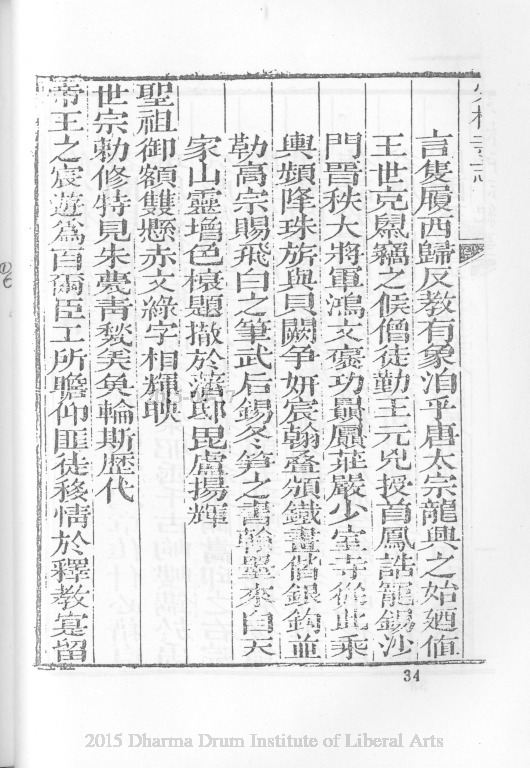 少林寺志
言隻履西歸反教有象洎乎唐太宗龍興之始廼値
王世充鬩竊之候僧徒勤王元兇授首鳳誥寵錫沙
門晋秩大將軍鴻文褒功贔屭莊嚴少室寺從此乘
輿頻降珠旂與貝闕爭妍宸翰叠頒鐵畫偕銀鉤並
勒高宗賜飛白之筆武后錫冬笋之書翰墨來自天
家山靈增色榱題撤於藩邸毘盧揚輝
聖祖御額雙懸赤文綠字相輝映
世宗勅修特見朱甍青㼽美奐輪斯歷代
帝王之宸遊為百爾臣工所瞻仰匪徒移情於釋教寔留
34
2015 Dharma Drum Institute of Liberal Arts